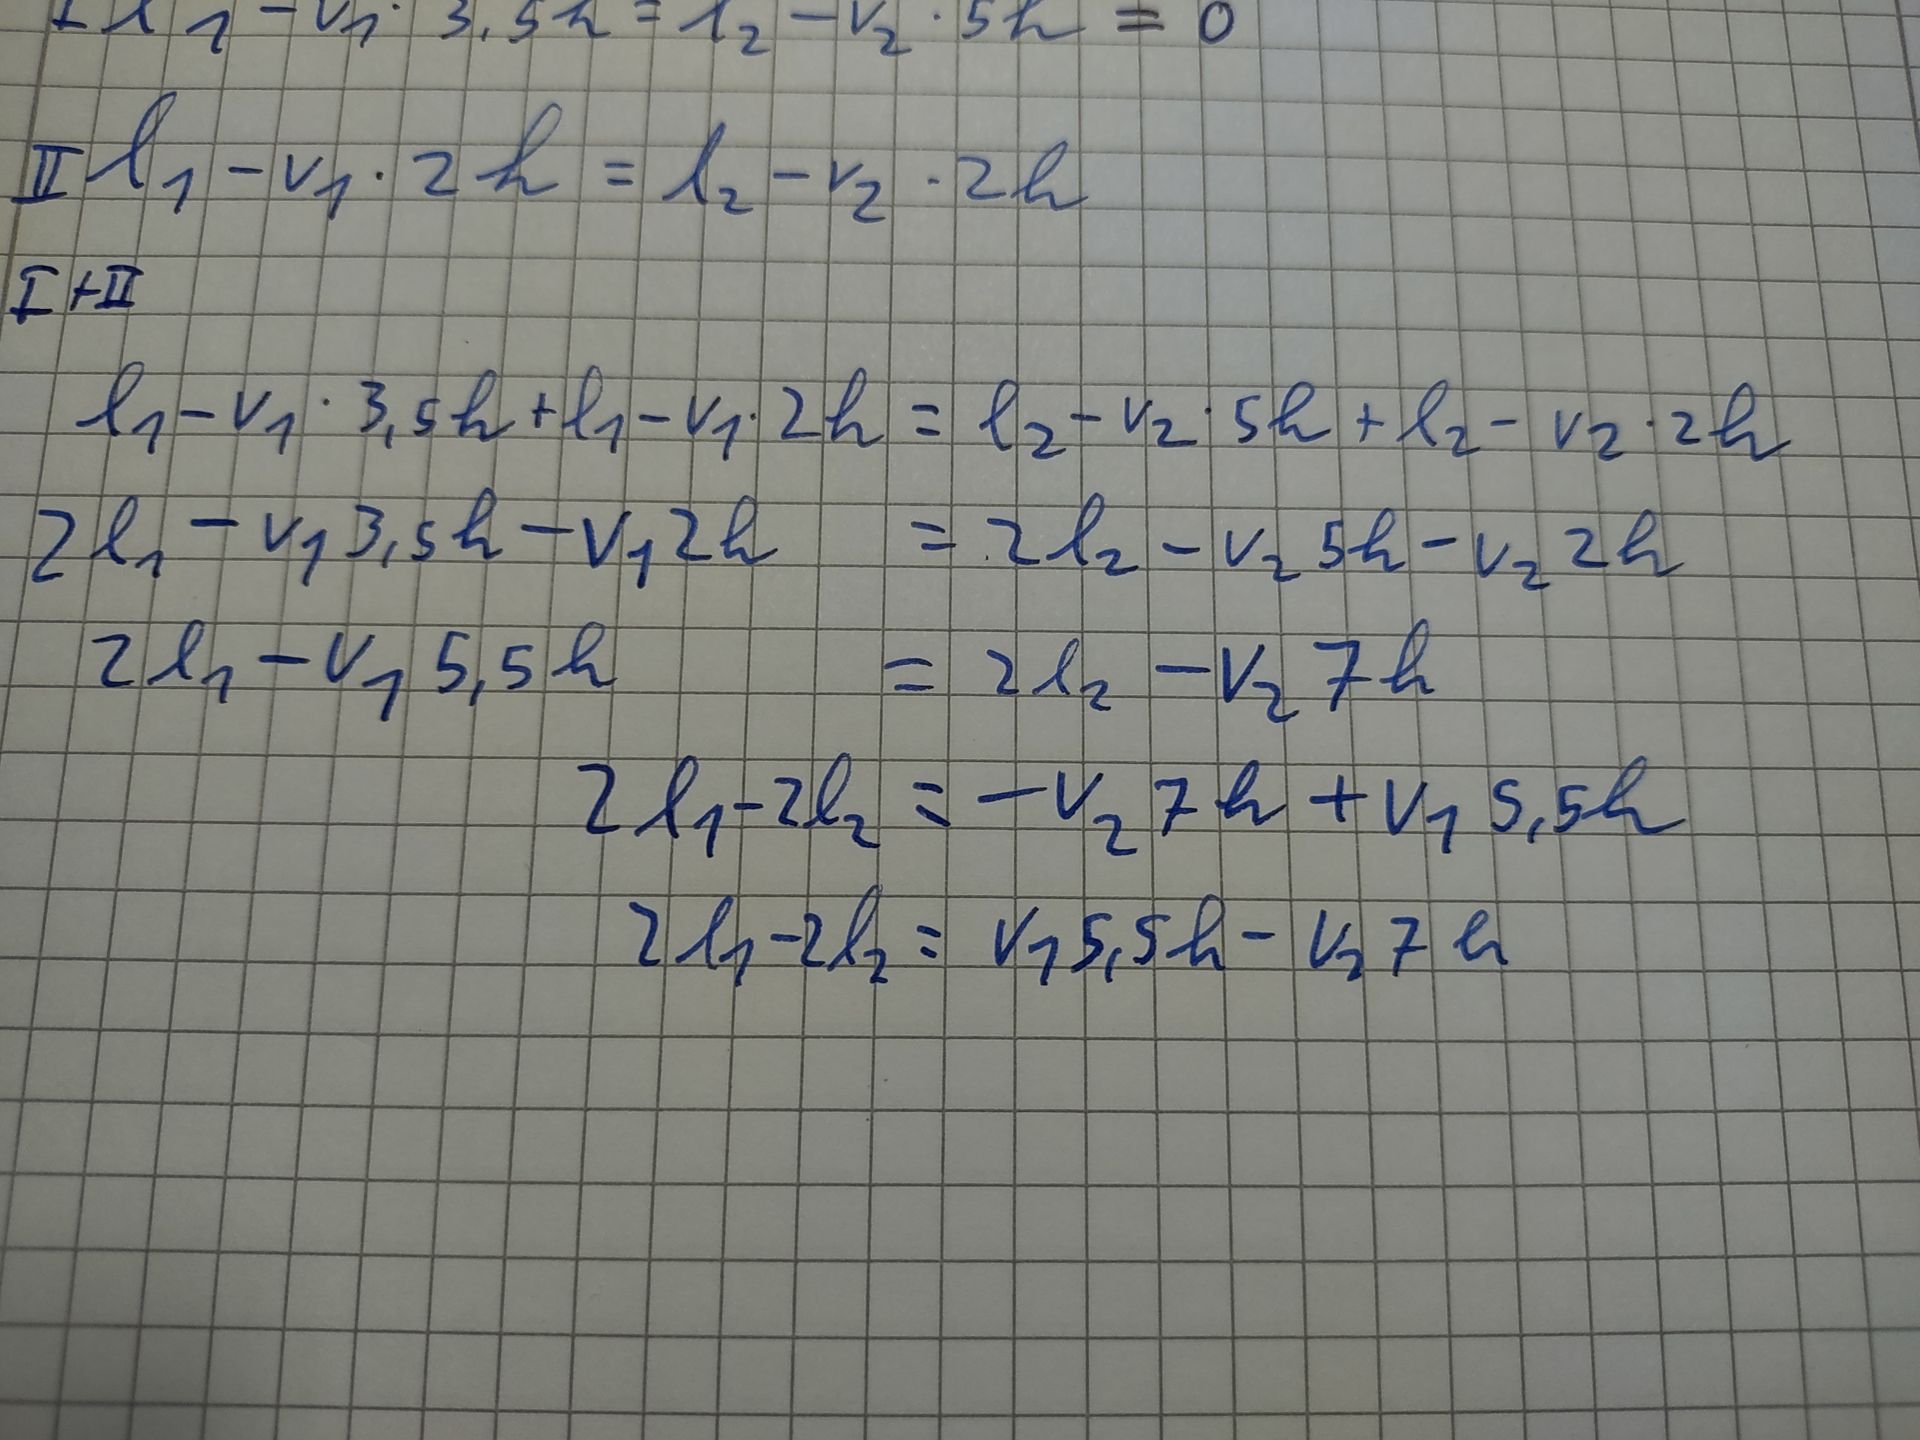 I l₁ - v₁ · 3,5h = l₂ - v₂ · 5h = 0
II l₁ - v₁ · 2h = l₂ - v₂ · 2h
I + II
l₁ - v₁ · 3,5h + l₁ - v₁ · 2h = l₂ - v₂ · 5h + l₂ - v₂ · 2h
2l₁ - v₁ 3,5h - v₁ 2h = 2l₂ - v₂ 5h - v₂ 2h
2l₁ - v₁ 5,5h = 2l₂ - v₂ 7h
2l₁ - 2l₂ = -v₂ 7h + v₁ 5,5h
2l₁ - 2l₂ = v₁ 5,5h - v₂ 7h